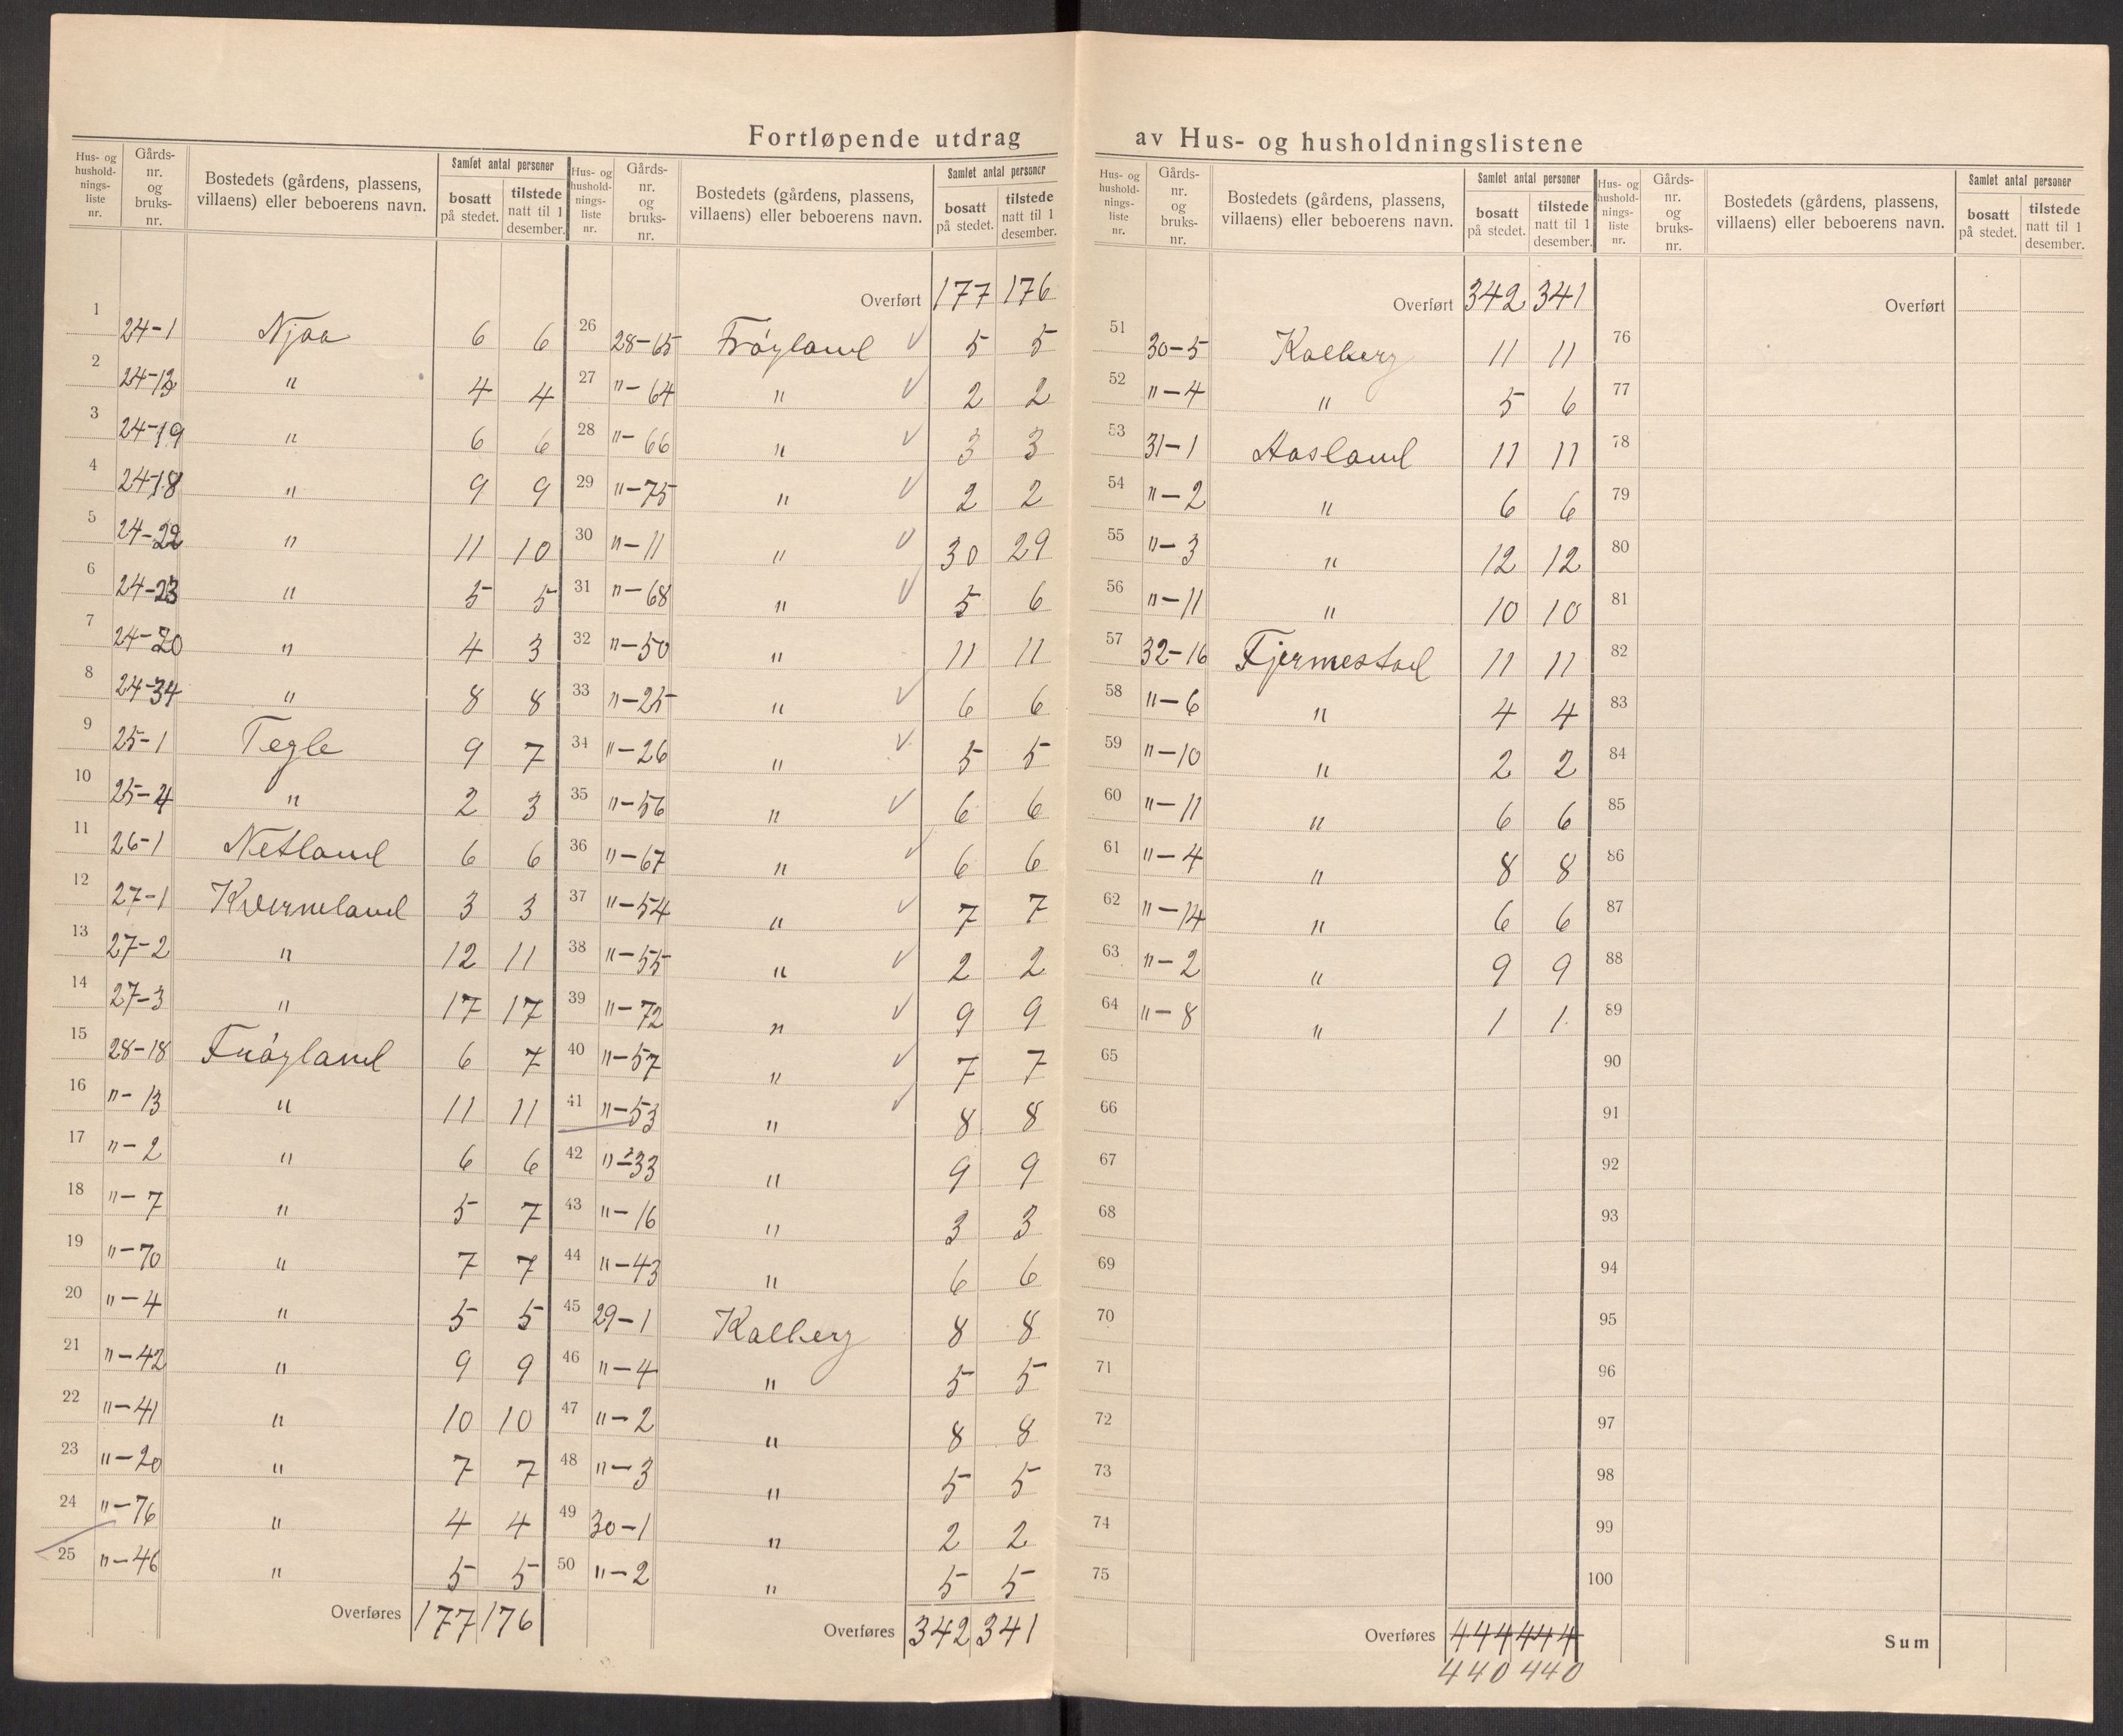 Fortløpende utdrag av Hus- og husholdningslistene
Hus- og husholdnings-liste nr. | Gårds-nr. og bruks-nr. | Bostedets (gårdens, plassens, villaens) eller beboerens navn. | Samlet antal personer bosatt på stedet. | tilstede natt til 1 desember.
1 24-1 Njaa 6 6
2 24-13 " 4 4
3 24-19 " 6 6
4 24-18 " 9 9
5 24-22 " 11 10
6 24-23 " 5 5
7 24-20 " 4 3
8 24-34 " 8 8
9 25-1 Tegle 9 7
10 25-4 " 2 3
11 26-1 Netland 6 6
12 27-1 Kverneland 3 3
13 27-2 " 12 11
14 27-3 " 17 17
15 28-18 Frøyland 6 7
16 "-13 " 11 11
17 "-2 " 6 6
18 "-7 " 5 7
19 "-70 " 7 7
20 "-4 " 5 5
21 "-42 " 9 9
22 "-41 " 10 10
23 "-20 " 7 7
24 "-76 " 4 4
25 "-46 " 5 5
Overføres 177 176
Hus- og husholdnings-liste nr. | Gårds-nr. og bruks-nr. | Bostedets (gårdens, plassens, villaens) eller beboerens navn. | Samlet antal personer bosatt på stedet. | tilstede natt til 1 desember.
Overført 177 176
26 28-65 Frøyland ✓ 5 5
27 "-64 " ✓ 2 2
28 "-66 " ✓ 3 3
29 "-75 " ✓ 2 2
30 "-11 " ✓ 30 29
31 "-68 " ✓ 5 6
32 "-50 " 11 11
33 "-25 " ✓ 6 6
34 "-26 " ✓ 5 5
35 "-56 " ✓ 6 6
36 "-67 " ✓ 6 6
37 "-54 " ✓ 7 7
38 "-55 " ✓ 2 2
39 "-72 " ✓ 9 9
40 "-57 " ✓ 7 7
41 "-53 " ✓ 8 8
42 "-33 " 9 9
43 "-16 " 3 3
44 "-43 " 6 6
45 29-1 Kalberg 8 8
46 "-4 " 5 5
47 "-2 " 8 8
48 "-3 " 5 5
49 30-1 " 2 2
50 "-2 " 5 5
Overføres 342 341
Hus- og husholdnings-liste nr. | Gårds-nr. og bruks-nr. | Bostedets (gårdens, plassens, villaens) eller beboerens navn. | Samlet antal personer bosatt på stedet. | tilstede natt til 1 desember.
Overført 342 341
51 30-5 Kalberg 11 11
52 "-4 " 5 6
53 31-1 Aasland 11 11
54 "-2 " 6 6
55 "-3 " 12 12
56 "-11 " 10 10
57 32-16 Fjermestad 11 11
58 "-6 " 4 4
59 "-10 " 2 2
60 "-11 " 6 6
61 "-4 " 8 8
62 "-14 " 6 6
63 "-2 " 9 9
64 "-8 " 1 1
65
66
67
68
69
70
71
72
73
74
75
Overføres 444 444
440 440
Hus- og husholdnings-liste nr. | Gårds-nr. og bruks-nr. | Bostedets (gårdens, plassens, villaens) eller beboerens navn. | Samlet antal personer bosatt på stedet. | tilstede natt til 1 desember.
Overført
76
77
78
79
80
81
82
83
84
85
86
87
88
89
90
91
92
93
94
95
96
97
98
99
100
Sum